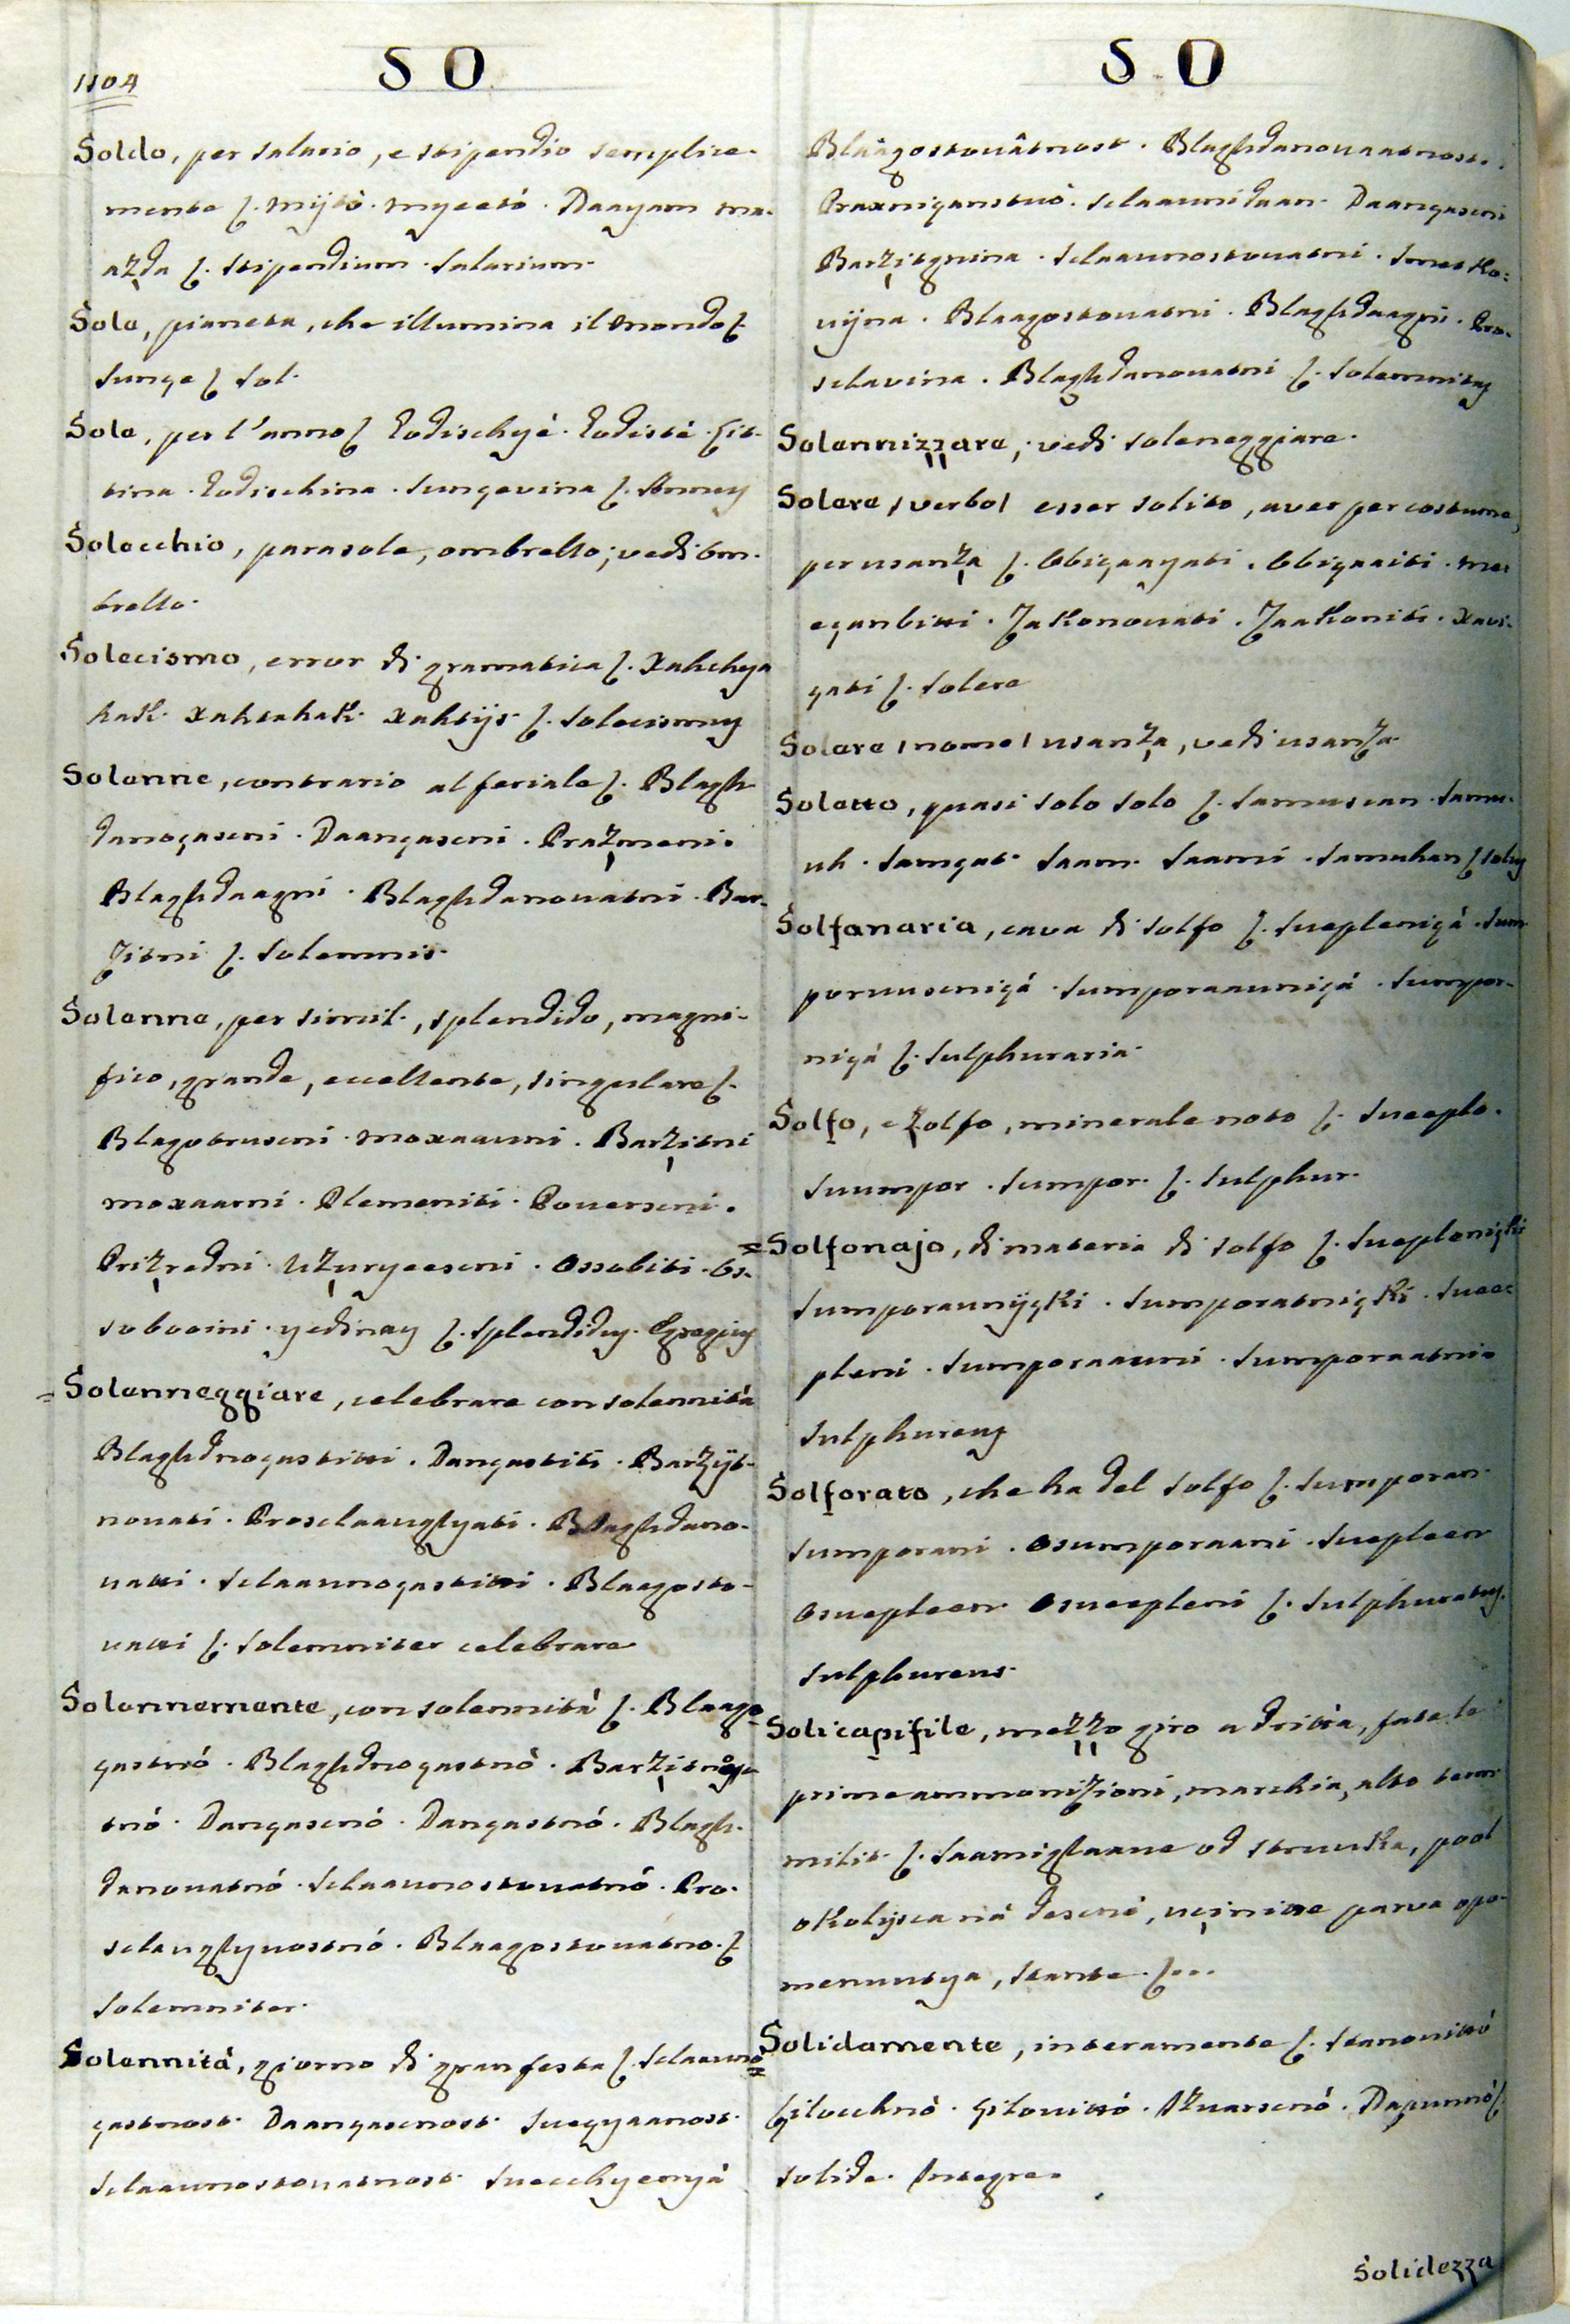 1104
SO
Soldo, per salario, e stipendio semplice-
mente ſ. mijtò. myeetó. Daayam ma-
azda ſ. stipendium. salarium.
Sole, pianeta, che illumina il mondo ſ.
sunçe ſ sol.
Sole, per l'anno ſ Godischyé. Godisté. Lit-
tina. Godischina. sunçevina ſ. Annuy
Solecchio, parasole, ombrello; vedi om-
brello.
Solecismo, error di gramatica ſ. Xahchya
hak. xahtahak. xahtijs. ſ. solecismuy
Solenne, contrario al feriale ſ. Blagh-
danoçascni. Daançascni. Prazmeni.
Blaghdaagni. Blaghdanouatni. Bar-
zitni ſ. solemnis.
Solenne, per simil., splendido, magni-
fico, grande, eccellente, singulare ſ.
Blagotruscni. moxaauni. Barzitni
moxaarni. Plemeniti. Pouerscni.
Prizredni. Uzuryeescni. Ossobiti. Os-
sobooini. yedinay ſ. splendiduy. Egregiuy
Solenneggiare, celebrare con solennità
Blaghdnoçastitti. Dançastiti. Barzijt-
nouati. Prosclaauglyati. Blaghdano-
uatti. sclaaunoçastitti. Blaagosto-
uatti ſ. solemniter celebrare
Solennemente, con solennità ſ. Blaago-
çastnó. Blaghdnoçastnò.
tnó. Dançascnó. Dançastnó. Blagh-
danouatnó. sclaaunostouatnó. Pro-
sclauglyuostnó. Blaagostouatno. ſ
solemniter.
Solennità, giorno di gran festa ſ. sclaauno
çastnost. Daançascnost. suegyaanost.
sclaaunostouatnost. suecchyenyá
SO
Blaagostouâtnost. Blaghdanouaatnost.
Praxniçanstuò. sclaaunidaan. Daançascni
Barzitgnina. sclaaunostouatni. smetko-
uijna. Blaagostouatni. Blaghdaagni. Pro-
sclavina. Blaghdanouatni ſ. solemnitay
Solennizzare, vedi soleneggiare.
Solere, verbo, esser solito, aver per costume,
per usanza ſ. Obiçaayati. Obiçaaiti.
eçanbitti. zakonouati. zaakoniti. xaui-
çati ſ. solere
Solere, nome, usanza, vedi usanza.
Soletto, quasi solo solo ſ. samuscan. samu-
uh. samçat. saam. saami. samuhan ſ soluy
Solfanaria, cava di solfo ſ. sueplenicá. sum-
poruuscnicá. sumporaaunicá. sumpor-
nicá ſ. sulphuraria.
Solfo, e zolfo, minerale noto ſ. sueeplo.
suumpor. sumpor. ſ. sulphur.
Solfonajo, di materia di solfo ſ. sueplenicki
sumporaunijcki. sumporatnicki. suee-
pleni. sumporaauni. sumporaatni.
sulphureuy
Solforato, che ha del solfo ſ. sumporan.
sumporani. osumporaani. suepleen
osuepleen. osueepleni ſ. sulphuratuy.
sulphureus.
Solicapifile, mezzo giro a dritta, fate le
prime ammonizioni, marchia, alto term.
milit. ſ. saamiglaaue od struuka, pool
okolijsca ná descnó, uçinitte parua opo-
menuutya, stante. ſ...
Solidamente, interamente ſ. stanouittó
Çilocchnò. Çilouittó. Dapunnó ſ.
solide. Integre.
Solidezza